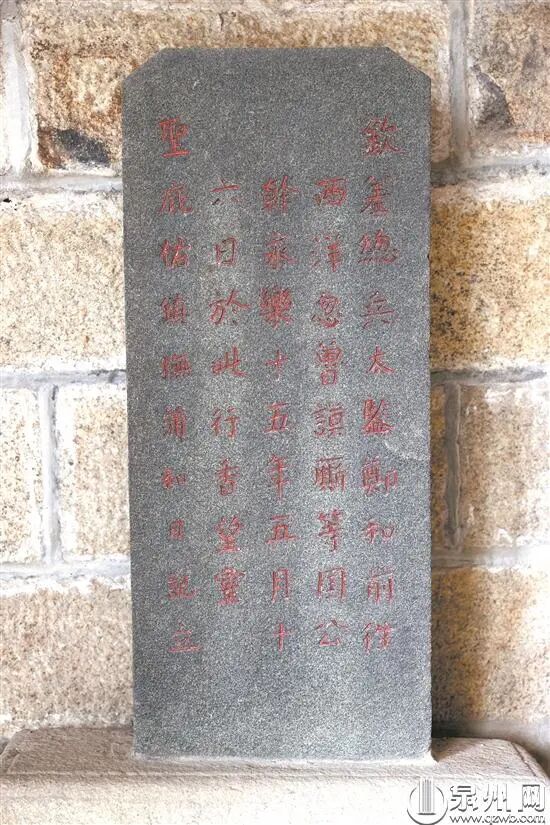 欽差總兵太監鄭和前往
西洋忽魯謨厮等国公
幹永樂十五年五月十
六日於此行香望靈
聖庇佑鎮撫蒲和日記立
泉州网
www.qzwb.com